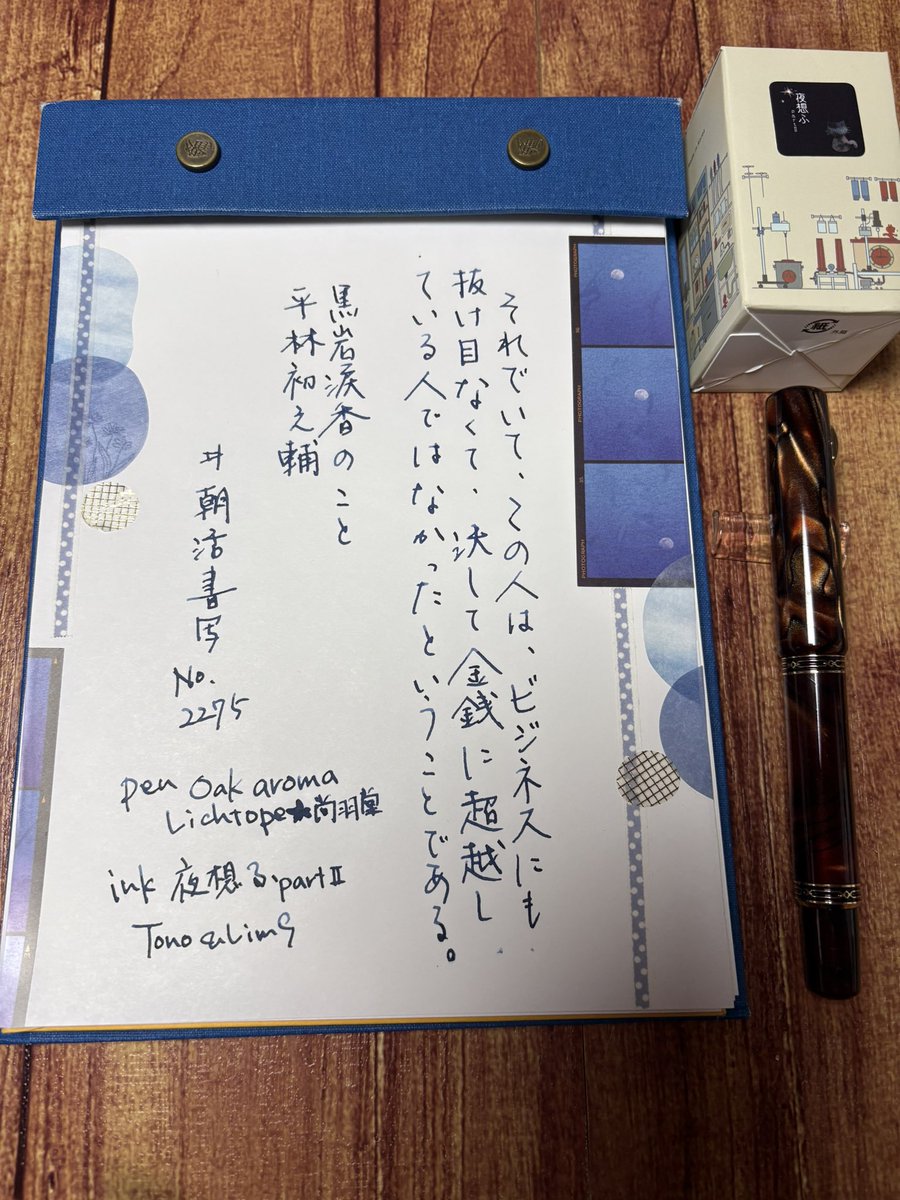 それでいて、この人は、ビジネスにも
抜け目なくて、決して金銭に超越し
ている人ではなかったということである。
黒岩涙香のこと
平林初之輔
#朝活書写
No.
2275
pen Oak aroma
Lichtope★尚羽堂
ink 夜想ふ partⅡ
Tono & Lims
夜想ふ
partII
PHOTOGRAPH
PHOTOGRAPH
PHOTOGRAPH
紙
外箱